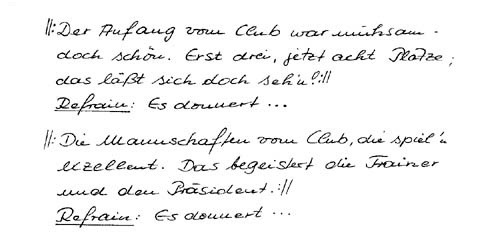 ||: Der Anfang vom Club war mühsam -
doch schön. Erst drei, jetzt acht Plätze;
das läßt sich doch seh'n! :||
Refrain: Es donnert ...
||: Die Mannschaften vom Club, die spiel'n
exzellent. Das begeistert die Trainer
und den Präsident. :||
Refrain: Es donnert ...